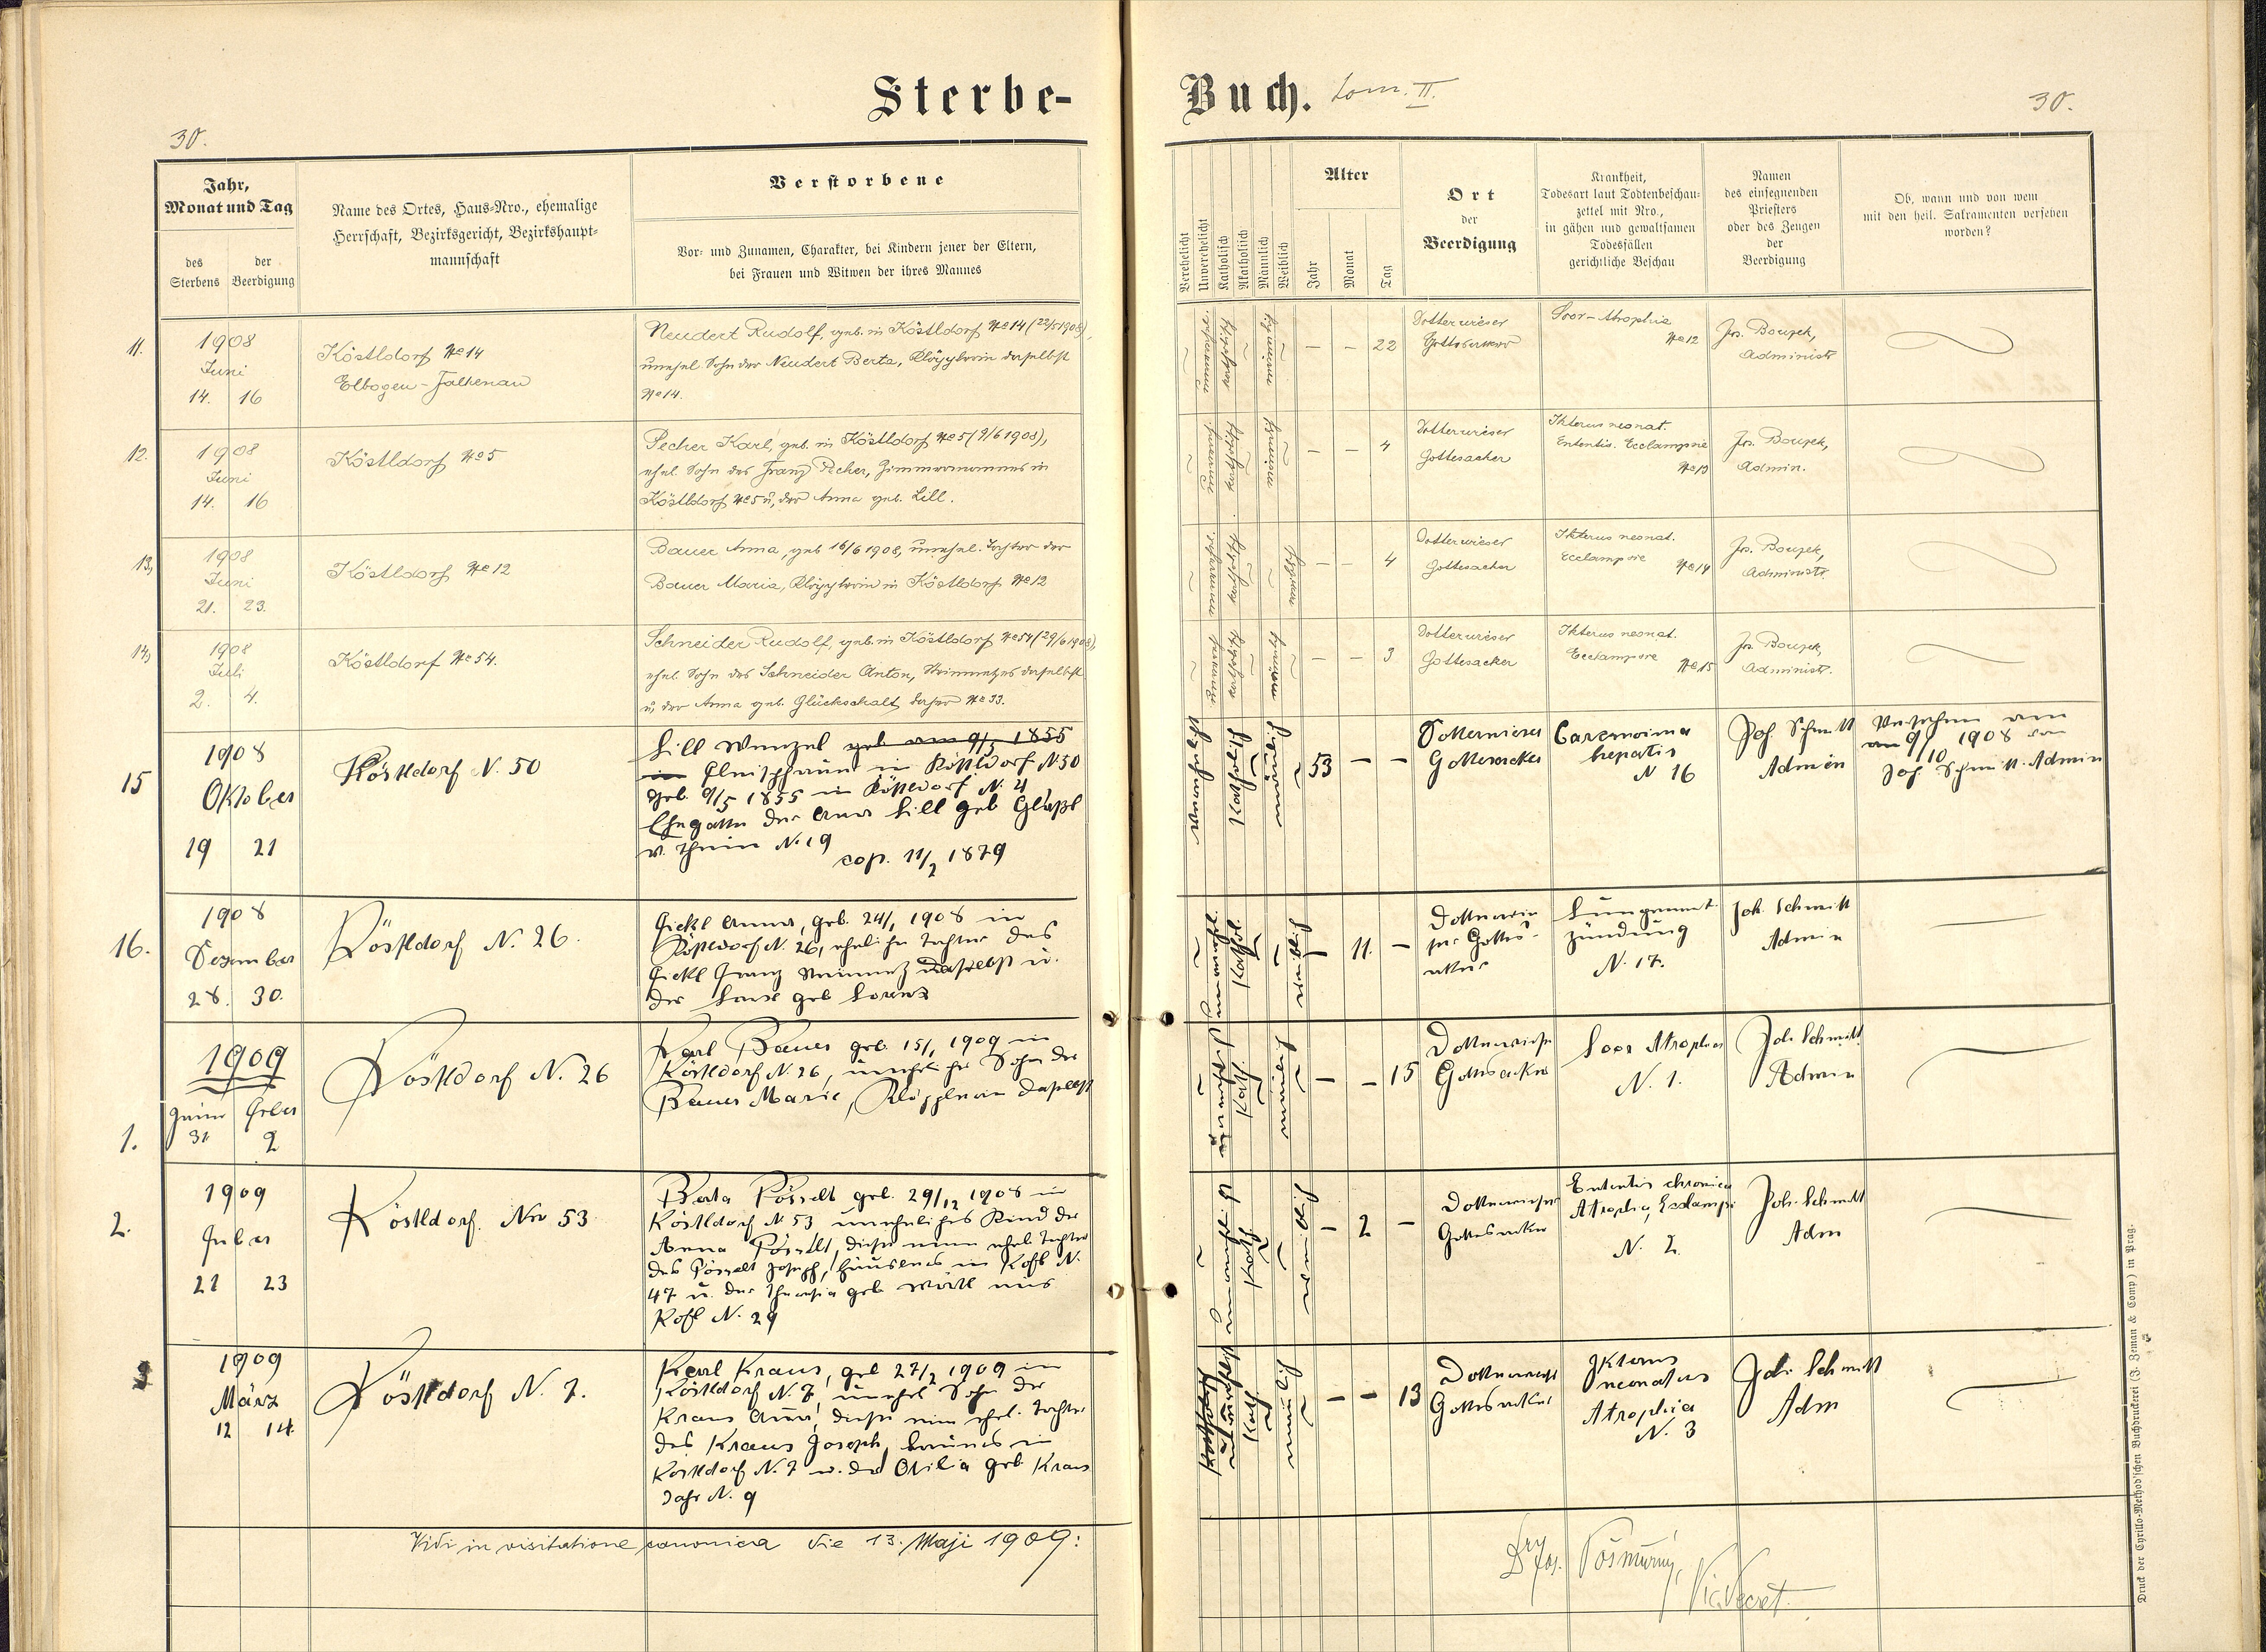 Sterbe-
Buch. tom. II.
30.
30.
Jahr,
Monat und Tag
des
Sterbens
der
Beerdigung
Name des Ortes, Haus-Nro., ehemalige
Herrschaft, Bezirksgericht, Bezirkshaupt-
mannschaft
Verstorbene
Vor- und Zunamen, Charakter, bei Kindern jener der Eltern,
bei Frauen und Witwen der ihres Mannes
Verehelicht
Unverehelicht
Katholisch
Akatholisch
Männlich
Weiblich
Alter
Jahr
Monat
Tag
Ort
der
Beerdigung
Krankheit,
Todesart laut Todtenbeschau-
zettel mit Nro.,
in gähen und gewaltsamen
Todesfällen
gerichtliche Beschau
Namen
des einsegnenden
Priesters
oder des Zeugen
der
Beerdigung
Ob, wann und von wem
mit den heil. Sakramenten versehen
worden?
11.
1908
Juni
14. 16
Köstldorf No 14
Elbogen-Falkenau
Neudert Rudolf, geb. in Köstldorf No 14 (22/5 1908),
unehel. Sohn der Neudert Berta, Klöpplerin daselbst
No 14.
katholisch
männlich
– – 22
Dotterwieser
Gottesacker
Soor-Atrophie
No 12
Jos. Bouzek,
Administr
12.
1908
Juni
14. 16
Köstldorf No 5
Pecher Karl, geb. in Köstldorf No 5 (9/6 1908),
ehel. Sohn des Franz Pecher, Zimmermannes in
Köstldorf No 5 u. der Anna geb. Lill.
katholisch
männlich
– – 4
Dotterwieser
Gottesacker
Ikterus neonat.
Ententis. Ecclampsie
No 13
Jos. Bouzek,
Admin.
13,
1908
Juni
21. 23.
Köstldorf No 12
Bauer Anna, geb 16/6 1908, unehel. Tochter der
Bauer Maria, Klöpplerin in Köstldorf No 12
katholisch
weiblich
– – 4
Dotterwieser
Gottesacker
Ikterus neonat.
Ecclampsie
No 14
Jos. Bouzek,
Administr.
14,
1908
Juli
2. 4.
Köstldorf No 54.
Schneider Rudolf, geb. in Köstldorf No 54 (29/6 1908),
ehel. Sohn des Schneider Anton, Steinmetzes daselbst
u. der Anna geb. Glückschalt daher No 33.
katholisch
männlich
– – 3
Dotterwieser
Gottesacker
Ikterus neonat.
Ecclampsie
No 15
Jos. Bouzek,
Administ.
15
1908
Oktober
19 21
Köstldorf N. 50
Lill Wenzel geb am 9/5 1855
in Fleischhauer in Köstldorf N 50
geb. 9/5 1855 in Köstldorf N. 4
Ehegatte der Anna Lill geb Gläßl
v. Thein N. 19
cop. 11/2 1879
verehelicht
katholisch
männlich
53 – –
Dotterwieser
Gottesacker
Carcinoima
hepatis
N 16
Joh Schmitt
Admin
Versehen am
am 9/10 1908 von
Joh. Schmitt. Admin
16.
1908
Dezember
28. 30.
Köstldorf N. 26.
Fickl Anna, geb. 24/1 1908 in
Köstldorf N. 26, eheliche Tochter des
Fickl Franz Steinmetz daselbst u.
der geb Lorenz
kathol.
weiblich
– 11. –
Dotterwie
ser Gottes-
acker
Lungenent-
zündung
N. 17.
Joh. Schmitt
Admin
1.
1909
Jänner Feber
31 2
Köstldorf N. 26
Karl Bauer geb. 15/1 1909 in
Köstldorf N. 26, unehelicher Sohn der
Bauer Marie, Klöpplerin daselbst
kath
männlich
– – 15
Dotterwieser
Gottesacker
Soor Atrophie
N. 1.
Joh. Schmitt
Admin
2.
1909
Feber
21 23
Köstldorf. Nro 53
Berta Pösselt geb. 29/12 1908 in
Köstldorf N 53 uneheliches Kind der
Anna Pösselt, diese eine ehel. Tochter
des Pösselt Joseph, Häuslers in Köstl N.
47 u. der Theresia geb. Wörtl aus
Köstl N. 29
kath
weiblich
– 2 –
Dotterwieser
Gottesacker
Ententis chronica
Atrophie, Eclampsi
N. 2
Joh. Schmitt
Adm
3
1909
März
12 14.
Köstldorf N. 7.
Karl Kraus, geb 27/2 1909 in
Köstldorf N. 7, unehel Sohn der
Kraus Anna, diese eine ehel. Tochter
des Kraus Joseph, in
Köstldorf N. 7 u. der Otilia geb. Kraus
Dahr N. 9
kath
männlich
– – 13
Dotterwieser
Gottesacker
Ikterus
neonatus
Atrophia
N. 3
Joh. Schmitt
Adm
Vidi in visitatione canonica die 13. Maji 1909:
Vic. Secret.
Druck der Cyrillo-Method'schen Buchdruckerei (J. Zeman & Comp) in Prag.